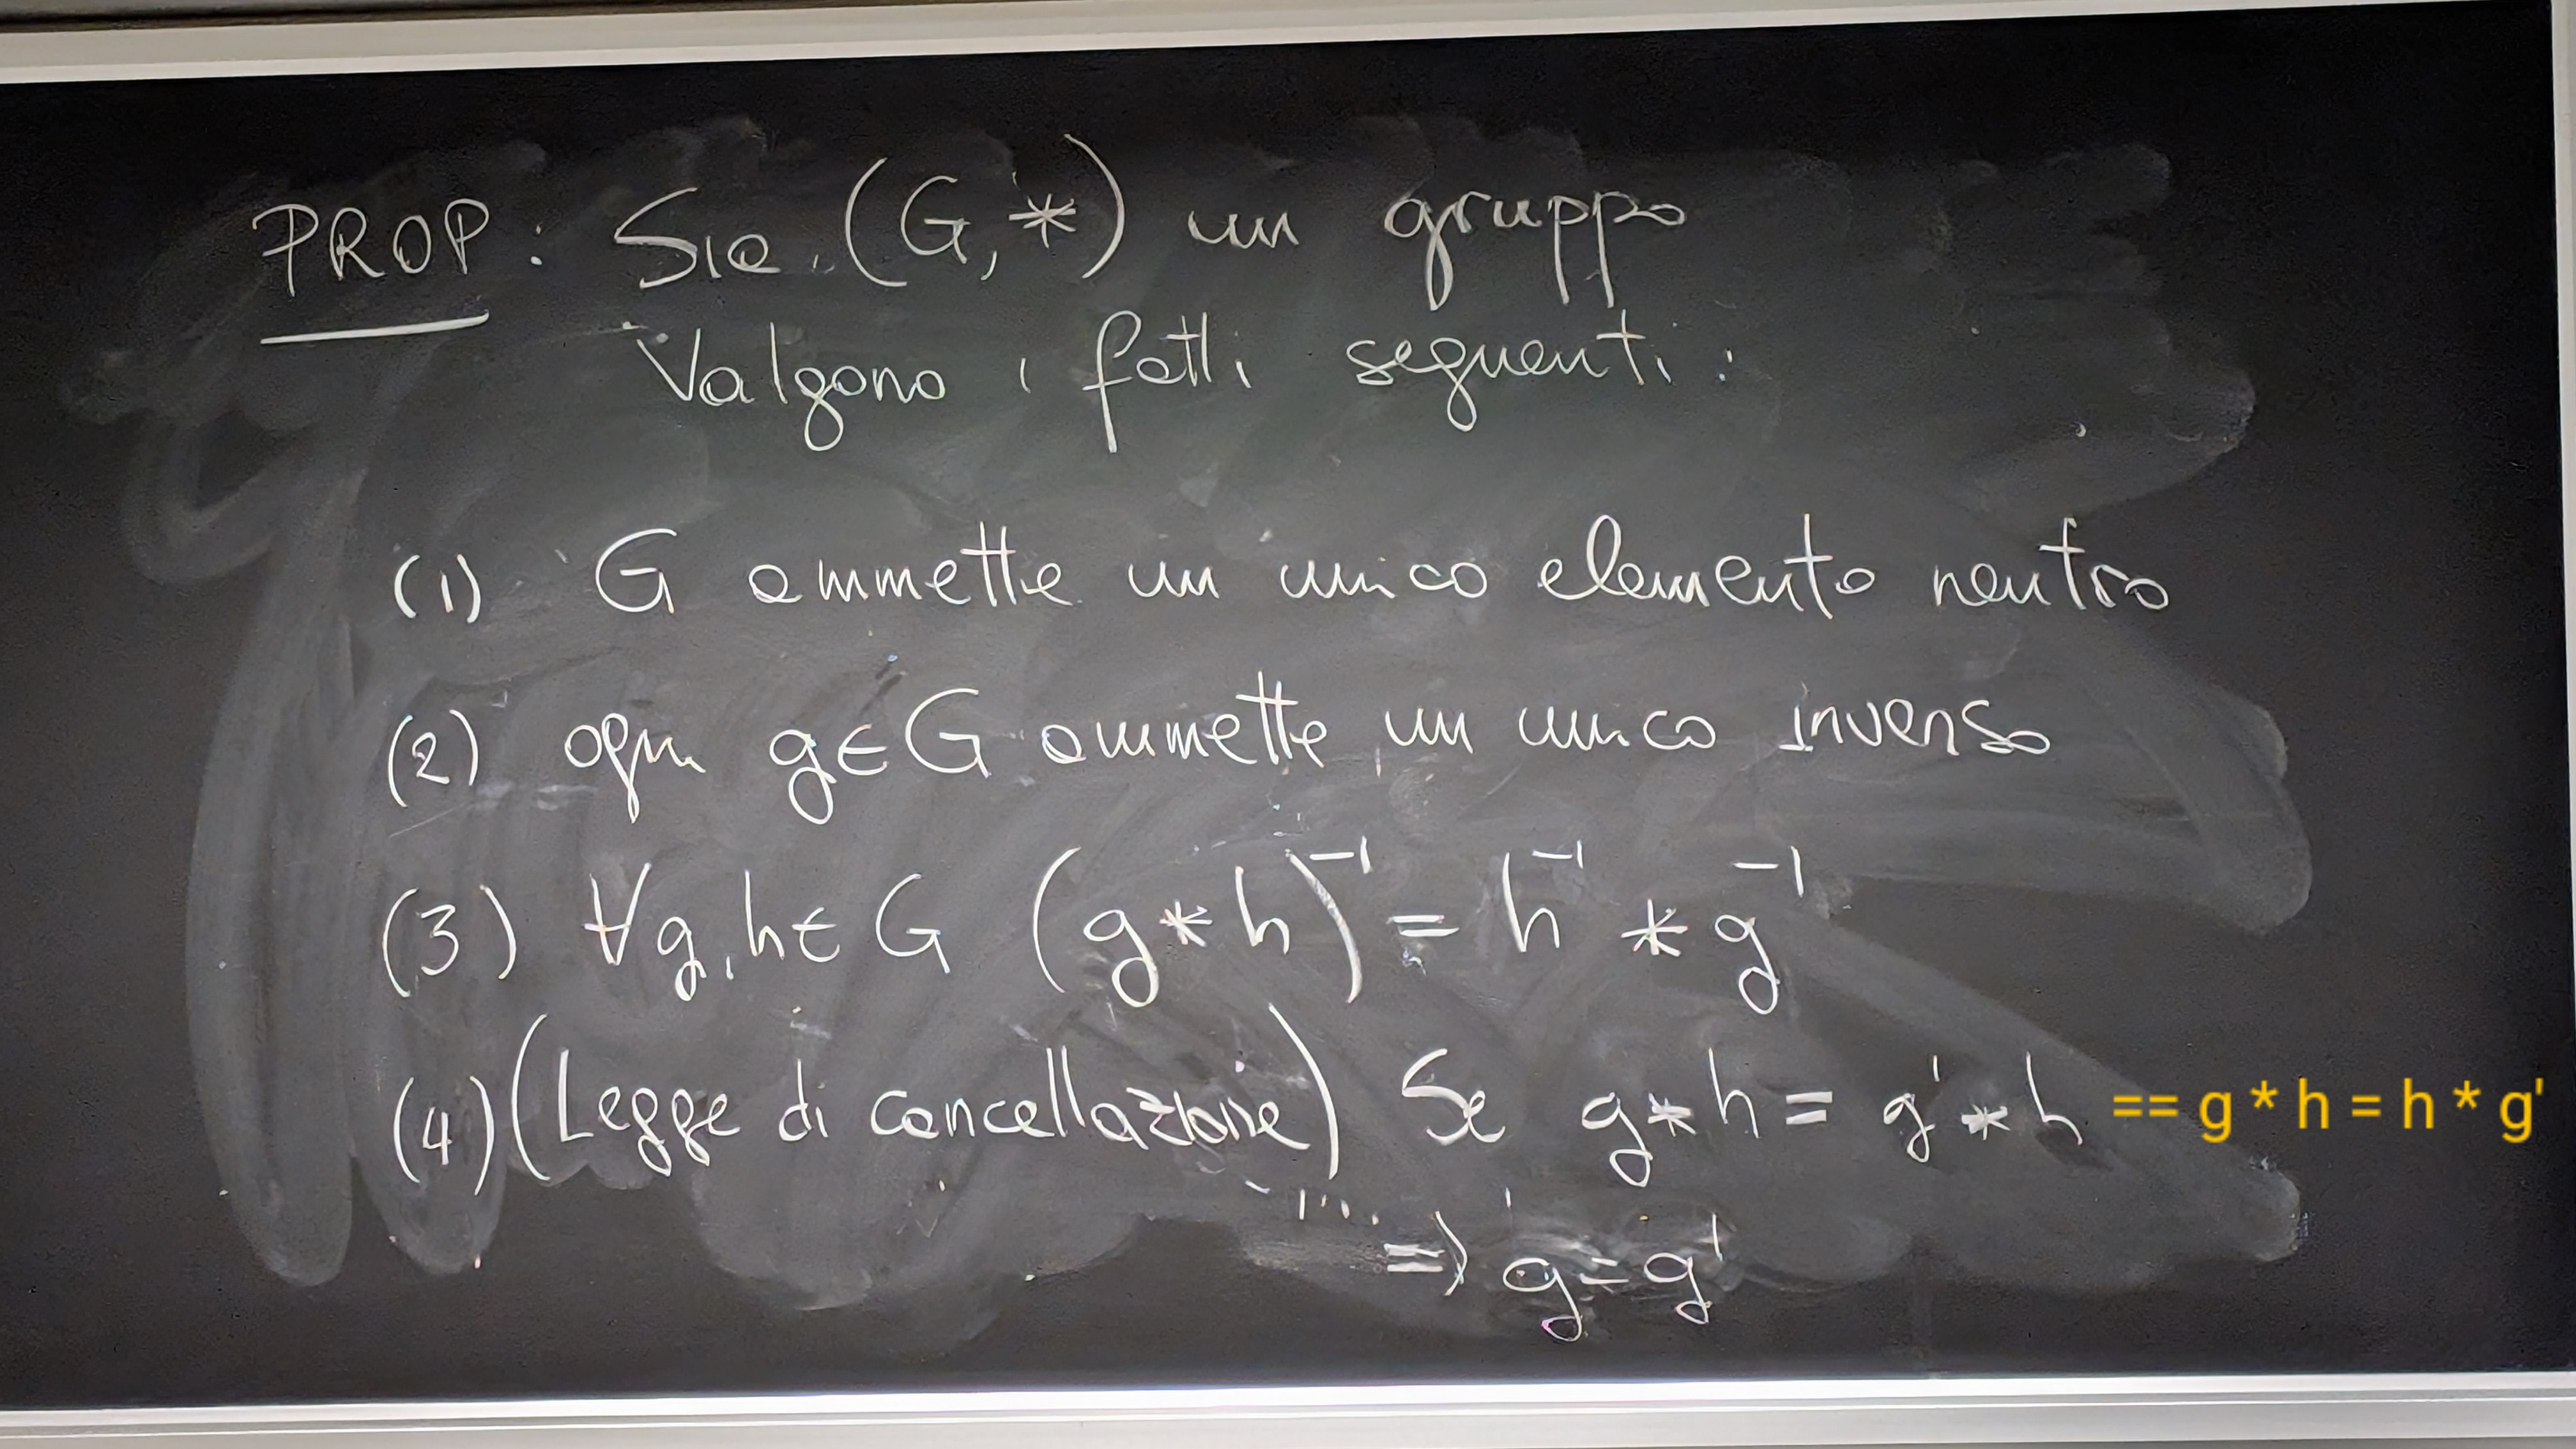 PROP: Sia (G, *) un gruppo
Valgono i fatti seguenti:
(1) G ammette un unico elemento neutro
(2) ogni g∈G ammette un unico inverso
(3) ∀g,h∈G (g*h)⁻¹ = h⁻¹ * g⁻¹
(4) (Legge di cancellazione) Se g*h = g'*h == g * h = h * g'
=) g=g'